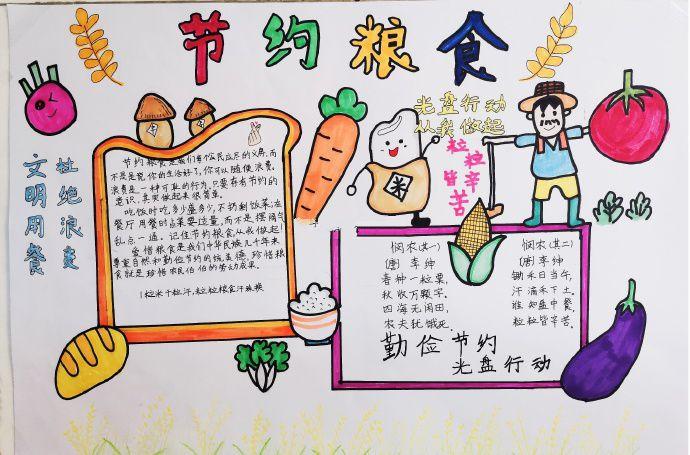 节约粮食
光盘行动
从我做起
粒粒
皆辛
苦
杜绝浪费
文明用餐
米
节约粮食是我们每个公民应尽的义务,而
不是是说你的生活好了,你可以随便浪费。
浪费是一种可耻的行为,只要存有节约的
意识,其实做起来很简单。
吃饭时吃多少盛多少,不扔剩饭菜,在
餐厅用餐时点菜要适量,而不是摆阔气
乱点一通。记住节约粮食从我做起!
爱惜粮食是我们中华民族几十年来
尊重自然和勤俭节约的传统美德,珍惜粮
食就是珍惜农民伯伯的劳动成果。
1粒米千粒汗,粒粒粮食汗珠换
悯农(其一)
(唐)李绅
春种一粒粟,
秋收万颗字,
四海无闲田,
农夫犹饿死。
悯农(其二)
(唐)李绅
锄禾日当午,
汗滴禾下土,
谁知盘中餐,
粒粒皆辛苦。
勤俭节约
光盘行动